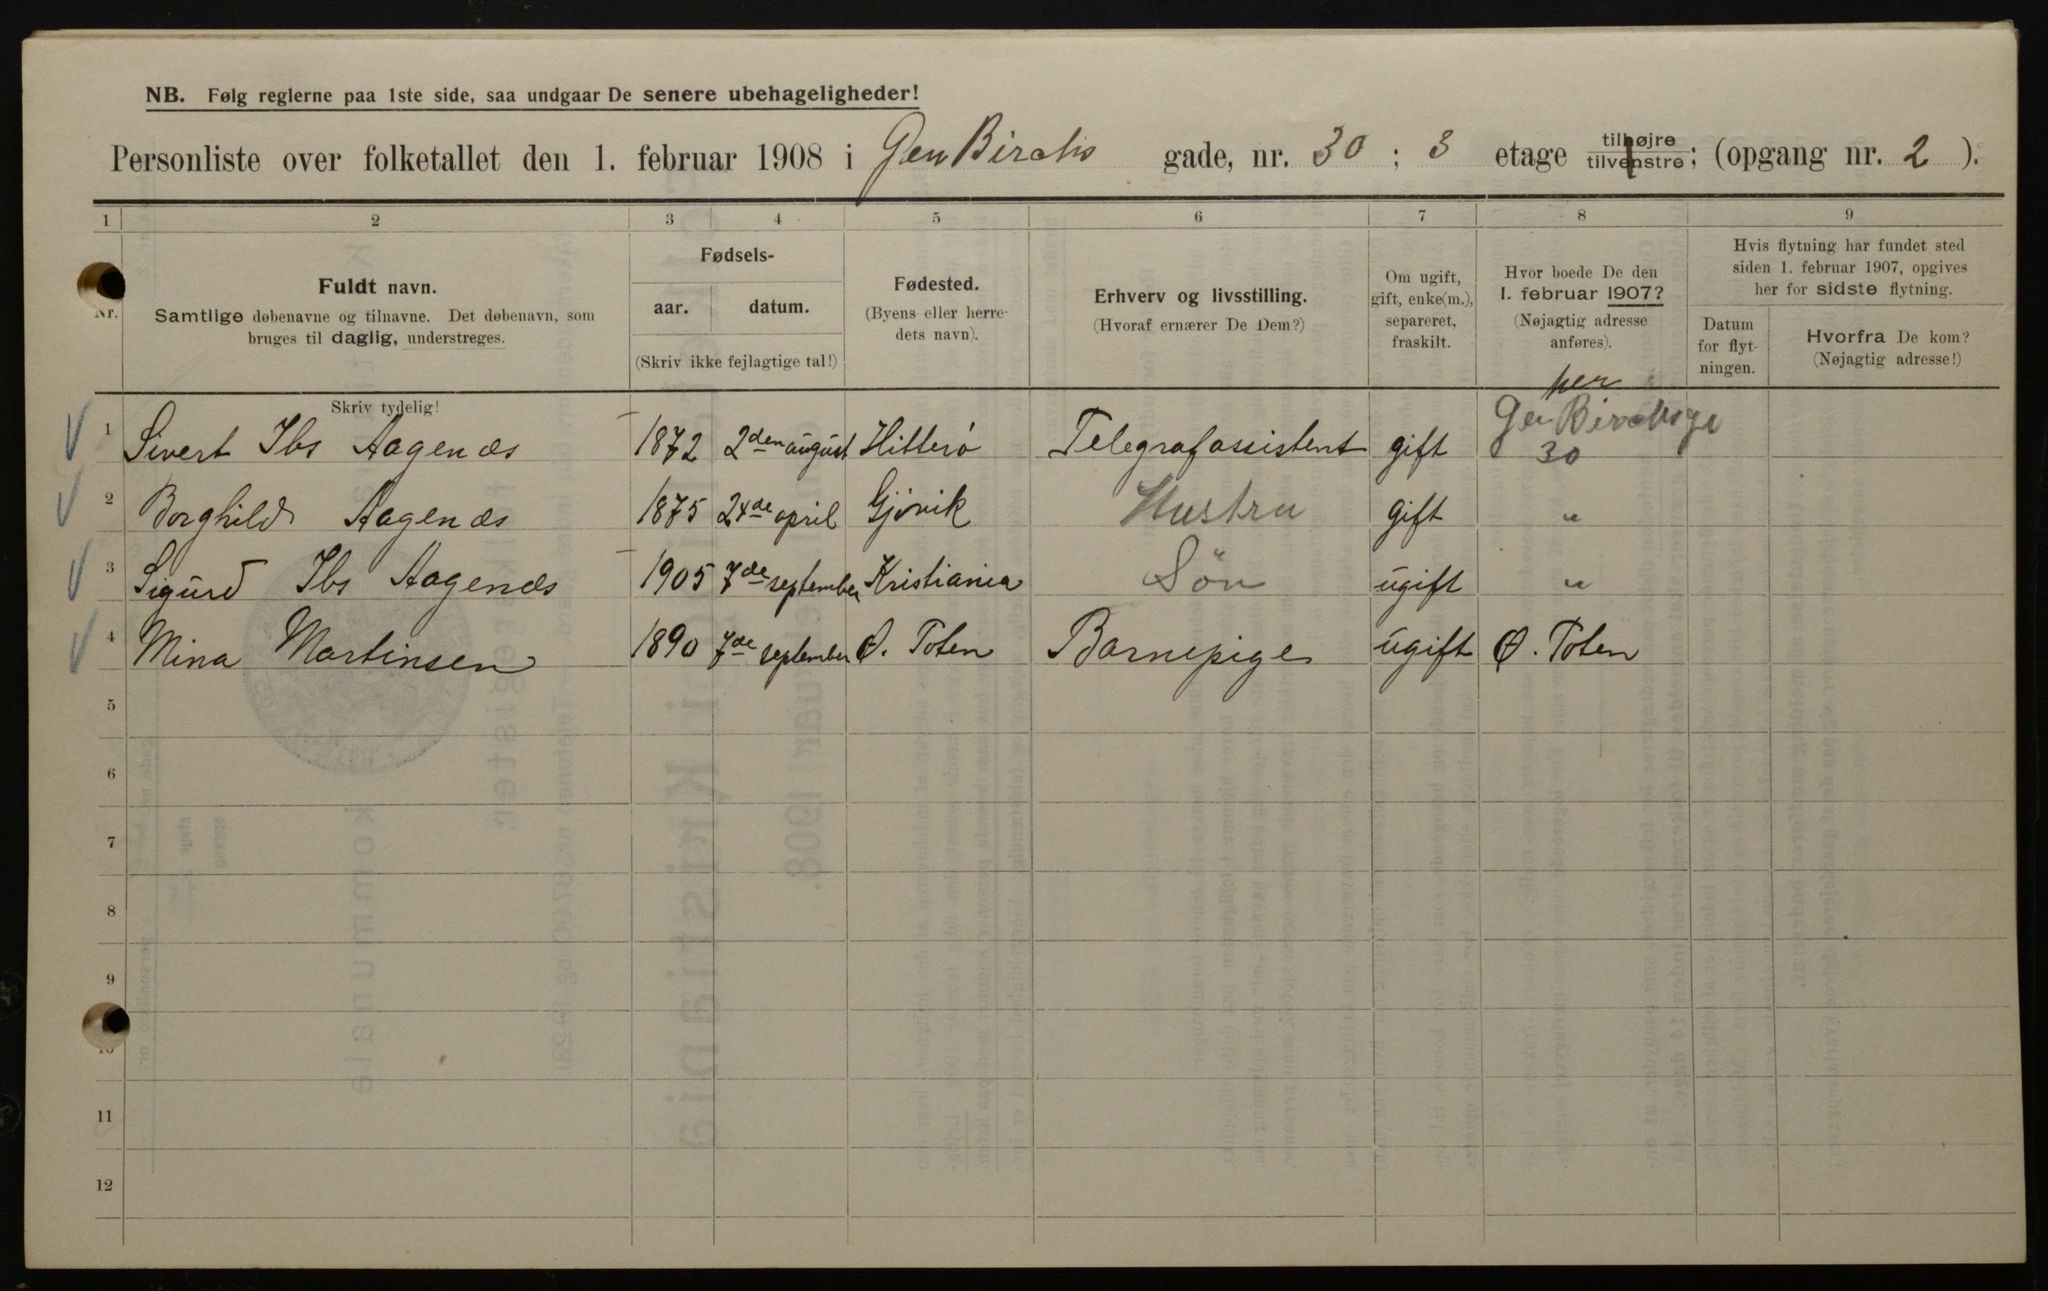 NB. Følg reglerne paa 1ste side, saa undgaar De senere ubehageligheder!
Personliste over folketallet den 1. februar 1908 i Gen Birchs gade, nr. 30 ; 3 etage tilhøjre tilvenstre; (opgang nr. 2 ).
1 2 3 4 5 6 7 8 9
Nr.
Fuldt navn.
Samtlige døbenavne og tilnavne. Det døbenavn, som
bruges til daglig, understreges.
Skriv tydelig!
Fødsels-
aar. datum.
(Skriv ikke fejlagtige tal!)
Fødested.
(Byens eller herre-
dets navn).
Erhverv og livsstilling.
(Hvoraf ernærer De Dem?)
Om ugift,
gift, enke(m.),
separeret,
fraskilt.
Hvor boede De den
1. februar 1907?
(Nøjagtig adresse
anføres).
Hvis flytning har fundet sted
siden 1. februar 1907, opgives
her for sidste flytning.
Datum
for flyt-
ningen.
Hvorfra De kom?
(Nøjagtig adresse!)
her
1 Sivert Ibs Aagenæs 1872 2den august Hitterø Telegrafassistent gift Gen Birchsgt 30
2 Borghild Aagenæs 1875 24de april Gjøvik Hustru gift "
3 Sigurd Ibs Aagenæs 1905 7de september Kristiania Søn ugift "
4 Mina Martinsen 1890 7de september Ø. Toten Barnepige ugift Ø. Toten
5
6
7
8
9
10
11
12